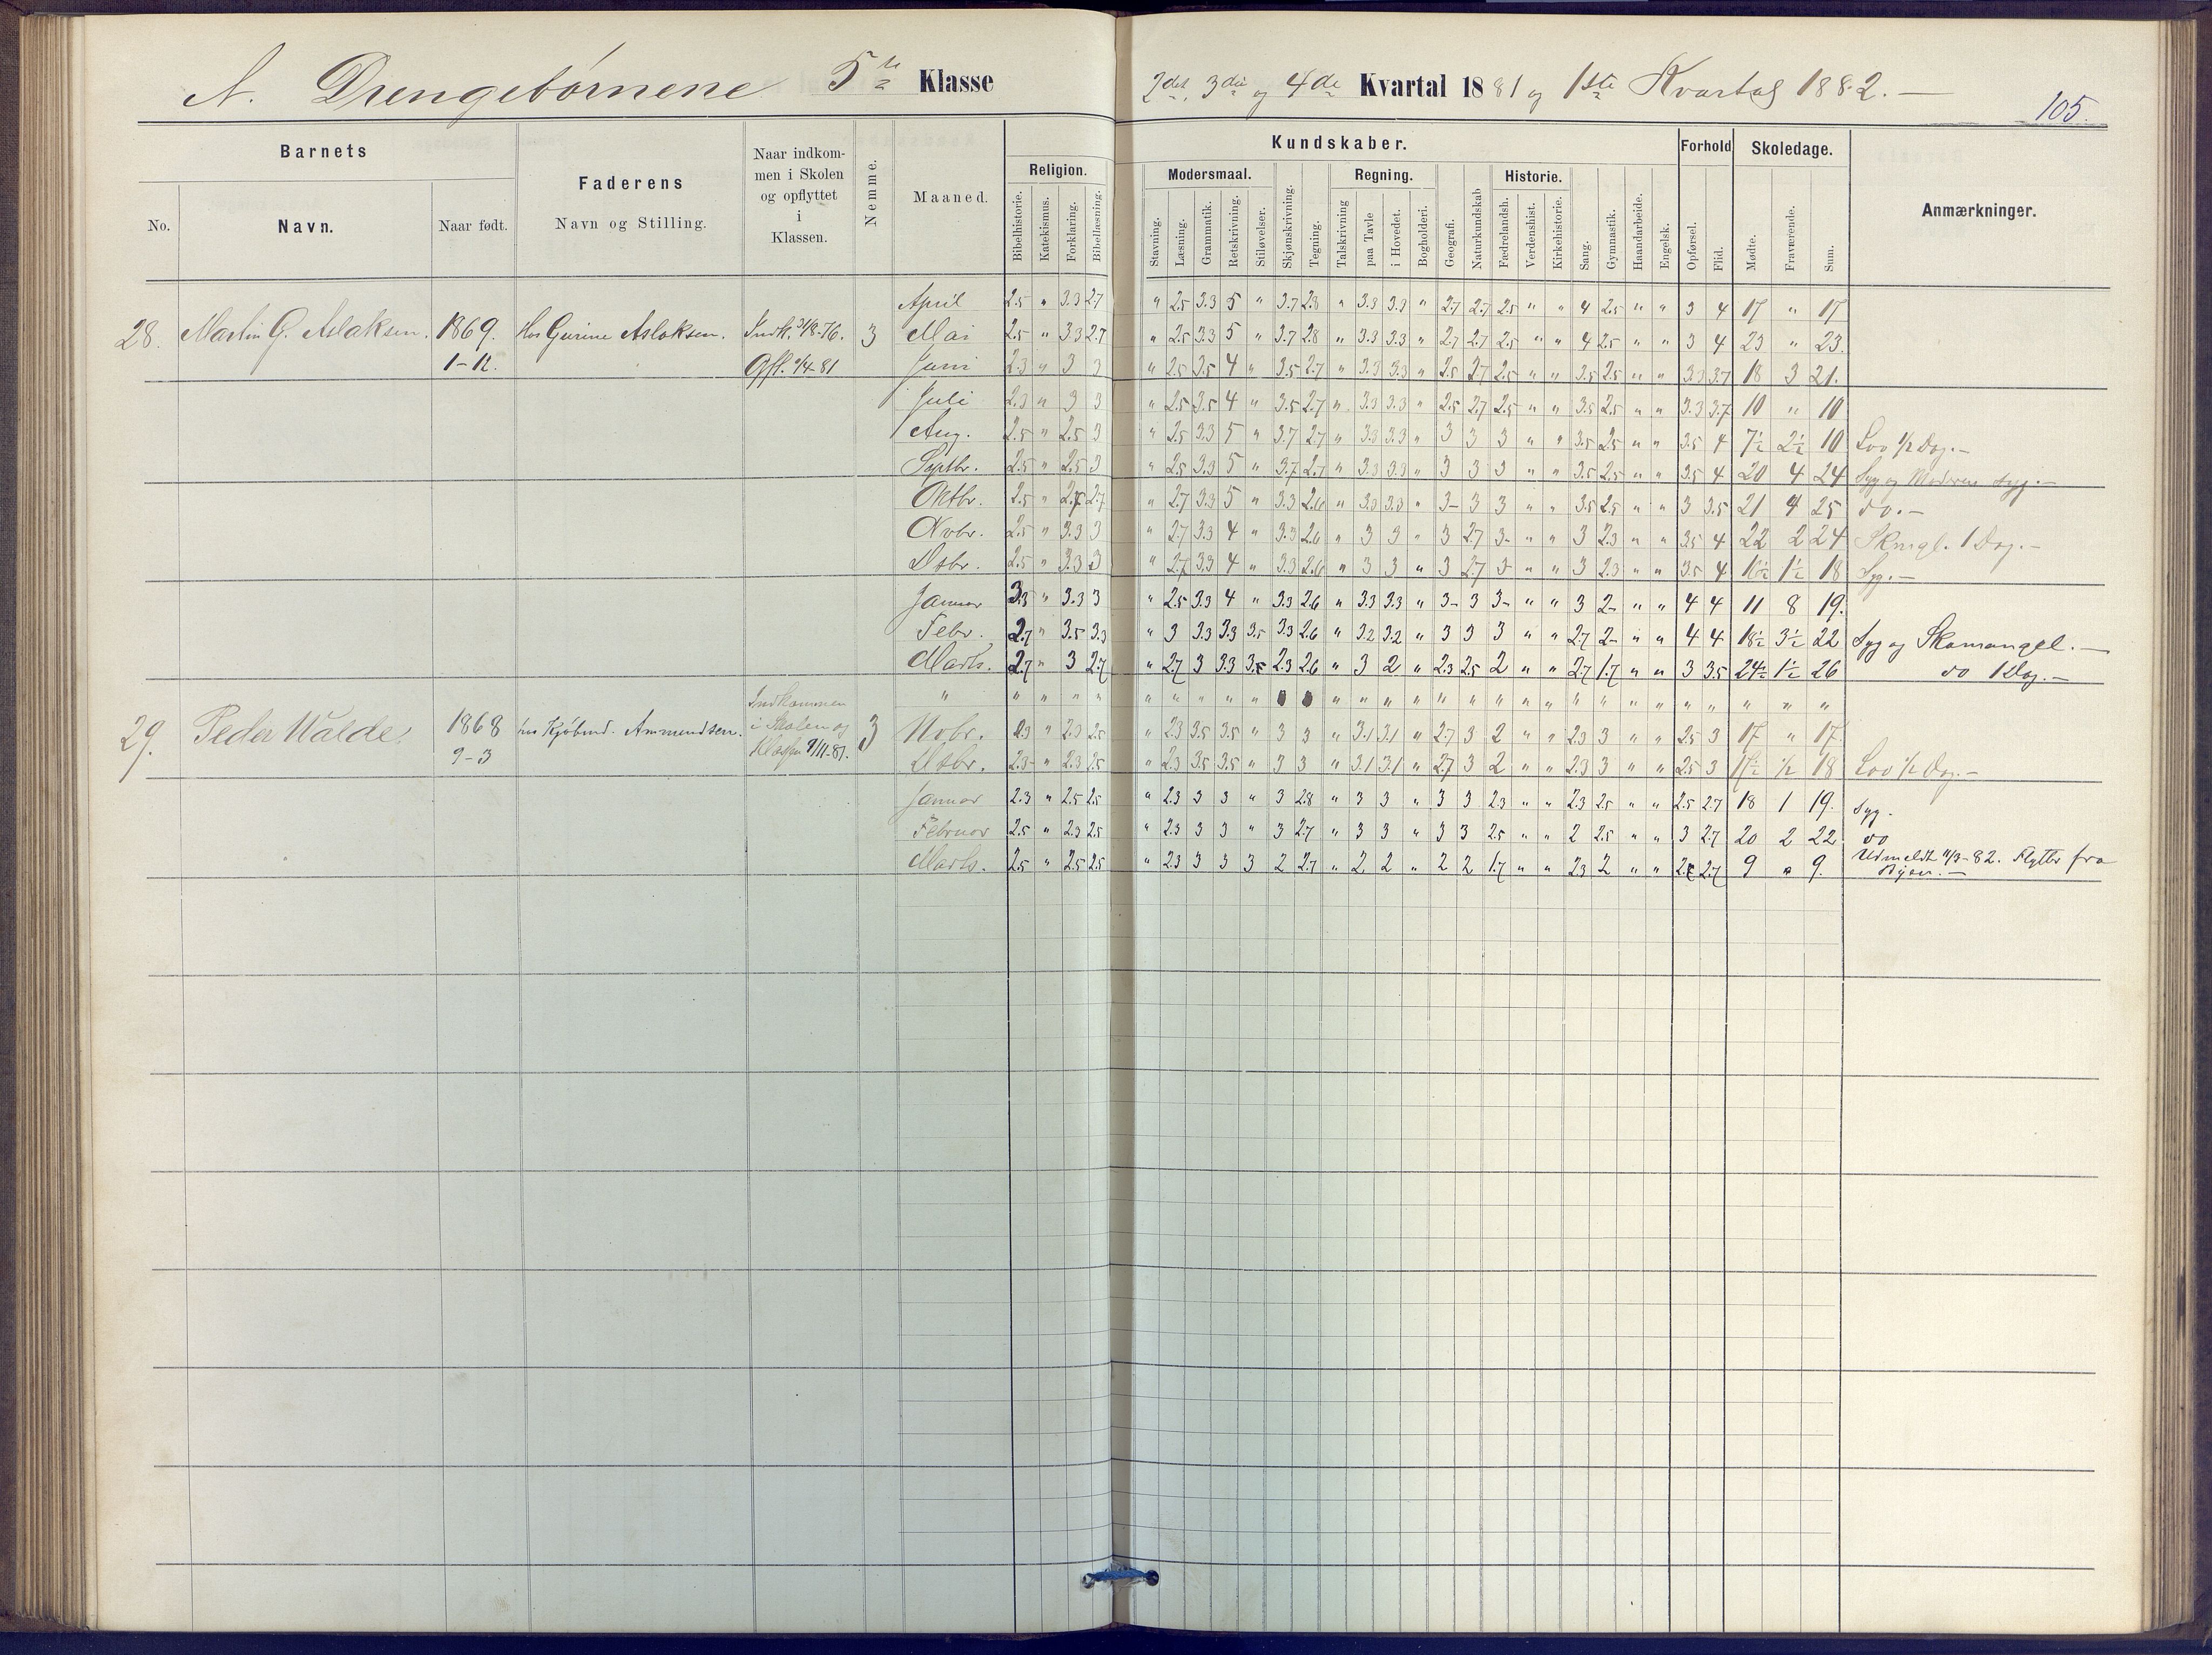 A. Drengebörnene 5te Klasse 2det, 3die og 4de Kvartal 1881 og 1ste Kvartal 1882. —
105.
Barnets
Faderens
Naar indkommen i Skolen og opflyttet i Klassen.
Nemme.
Maaned.
Kundskaber.
Forhold
Skoledage.
Anmærkninger.
No. Navn. Naar født. Navn og Stilling.
Religion. Modersmaal. Regning. Historie.
Bibelhistorie. Katekismus. Forklaring. Bibellæsning. Stavning. Læsning. Grammatik. Retskrivning. Stiløvelser. Skjønskrivning. Tegning. Talskrivning paa Tavle i Hovedet. Bogholderi. Geografi. Naturkundskab Fædrelandsh. Verdenshist. Kirkehistorie. Sang. Gymnastik. Haandarbeide. Engelsk. Opførsel. Flid. Mødte. Fraværende. Sum.
April 2.5 " 3.3 2.7 " 2.5 3.3 5 " 3.7 2.8 " 3.3 3.3 " 2.7 2.7 2.5 " " 4 2.5 " " 3 4 17 " 17
28. Martin G. Aslaksen. 1869. Hos Gurine Aslaksen. 3 Mai 2.5 " 3.3 2.7 " 2.5 3.3 5 " 3.7 2.8 " 3.3 3.3 " 2.7 2.7 2.5 " " 4 2.5 " " 3 4 23 " 23.
Opfl. 1/4 81 Juni 2.3 " 3 3 " 2.5 3.5 4 " 3.5 2.7 " 3.3 3.3 " 2.5 2.7 2.5 " " 3.5 2.5 " " 3.3 3.7 18 3 21.
Juli 2.3 " 3 3 " 2.5 3.5 4 " 3.5 2.7 " 3.3 3.3 " 2.5 2.7 2.5 " " 3.5 2.5 " " 3.3 3.7 10 " 10
Aug. 2.5 " 2.5 3 " 2.5 3.3 5 " 3.7 2.7 " 3.3 3.3 " 3 3 3 " " 3.5 2.5 " " 3.5 4 7½ 2½ 10 Lov 1/2 Dag. —
Septbr. 2.5 " 2.5 3 " 2.5 3.3 5 " 3.7 2.7 " 3.3 3.3 " 3 3 3 " " 3.5 2.5 " " 3.5 4 20 4 24 Syg og Moderen syg. —
Oktbr. 2.5 " 2.7 2.7 " 2.7 3.3 5 " 3.3 2.6 " 3.3 3.3 " 3- 3 3 " " 3.5 2.5 " " 3 3.5 21 4 25 do. —
Novbr. 2.5 " 3.3 3 " 2.7 3.3 4 " 3.3 2.6 " 3 3 " 3 2.7 3- " " 3 2.3 " " 3.5 4 22 2 24 Skmgl. 1 Dag. —
Dsbr. 2.5 " 3.3 3 " 2.7 3.3 4 " 3.3 2.6 " 3 3 " 3 2.7 3- " " 3 2.3 " " 3.5 4 16½ 1½ 18 Syg. —
Januar 3.3 " 3.3 3 " 2.5 3.3 4 " 3.3 2.6 " 3.3 3.3 " 3- 3 3- " " 3 2- " " 4 4 11 8 19.
Febr. 2.7 " 3.5 3.3 " 3 3.3 3.3 3.5 3.3 2.6 " 3.2 3.2 " 3 3 3 " " 2.7 2- " " 4 4 18½ 3½ 22 Syg og Skomangel. —
Marts. 2.7 " 3 2.7 " 2.7 3 3.3 3.5 2.3 2.6 " 3 2 " 2.3 2.5 2 " " 2.7 1.7 " " 3 3.5 24½ 1½ 26 do 1 Dag. —
29. Peder Walde. 1868 9-3 hos Kjøbmd. Ammundsen. Indkommen i Skolen og Klassen 9/11-81. 3
Novbr. 2.3 " 2.3 2.5 " 2.3 3.5 3.5 " 3 3 " 3.1 3.1 " 2.7 3 2 " " 2.3 3 " " 2.5 3 17 " 17.
Dsbr. 2.3- " 2.3 2.5 " 2.3 3.5 3.5 " 3 3 " 3.1 3.1 " 2.7 3 2 " " 2.3 3 " " 2.5 3 17½ ½ 18 Lov 1/2 Dag. —
Januar 2.3 " 2.5 2.5 " 2.3 3 3 " 3 2.8 " 3 3 " 3 3 2.3 " " 2.3 2.5 " " 2.5 2.7 18 1 19. Syg.
Februar 2.5 " 2.3 2.5 " 2.3 3 3 " 3 2.7 " 3 3 " 3 3 2.5 " " 2 2.5 " " 3 2.7 20 2 22 do
Marts. 2.5 " 2.5 2.5 " 2.3 3 3 3 2 2.7 " 2 2 " 2 2 1.7 " " 2.3 2 " " 2.7 9 " 9. Udmeldt 11/3-82. Flytter fra Byen. —